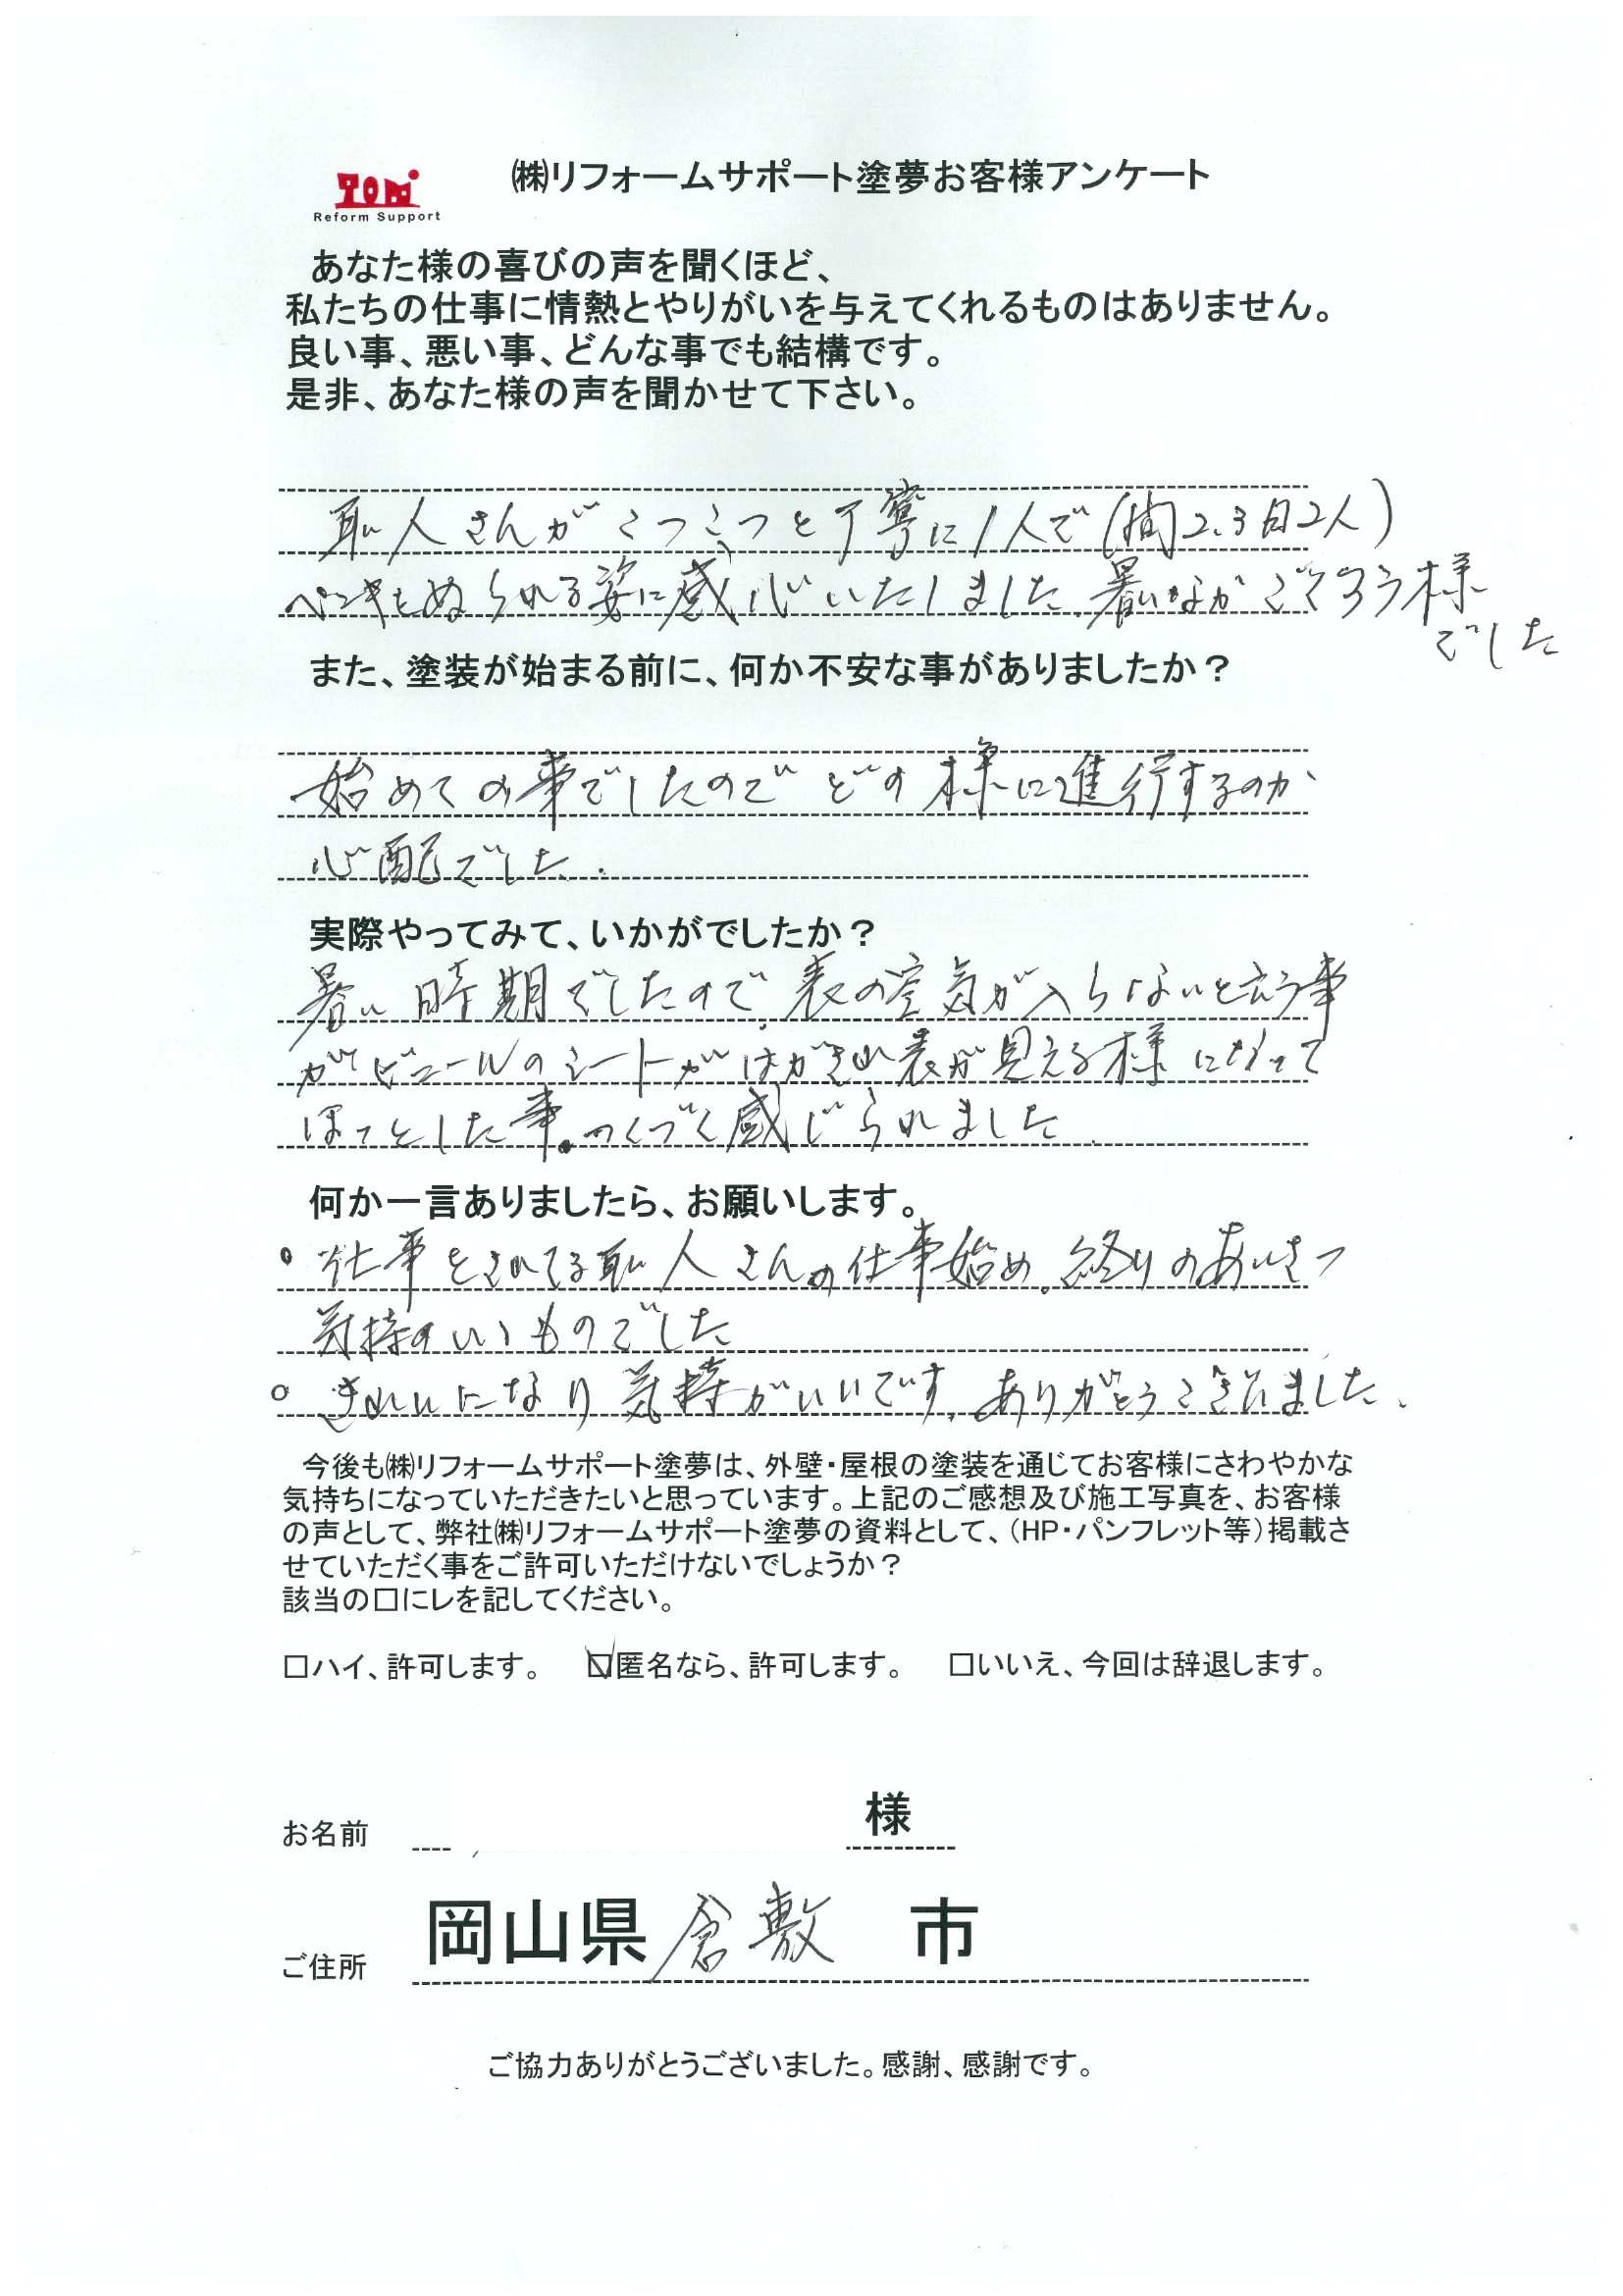 TOM
Reform Support
㈱リフォームサポート塗夢お客様アンケート
あなた様の喜びの声を聞くほど、
私たちの仕事に情熱とやりがいを与えてくれるものはありません。
良い事、悪い事、どんな事でも結構です。
是非、あなた様の声を聞かせて下さい。
職人さんがこつこつと丁寧に1人で(間2.3日2人)
ペンキをぬられる姿に感心いたしました.暑いなかごくろう様
でした
また、塗装が始まる前に、何か不安な事がありましたか？
始めての事でしたのでどの様に進行するのか
心配でした.
実際やってみて、いかがでしたか？
暑い時期でしたので、表の空気が入らないと云う事
がビニールのシートがはがされ表が見える様になって
ほっとした事。つくづく感じられました.
何か一言ありましたら、お願いします。
○仕事をされてる職人さんの仕事始め。終りのあいさつ
気持のいいものでした
○きれいになり気持がいいです.ありがとうございました.
今後も㈱リフォームサポート塗夢は、外壁・屋根の塗装を通じてお客様にさわやかな
気持ちになっていただきたいと思っています。上記のご感想及び施工写真を、お客様
の声として、弊社㈱リフォームサポート塗夢の資料として、（HP・パンフレット等）掲載さ
せていただく事をご許可いただけないでしょうか？
該当の□にレを記してください。
□ハイ、許可します。 ☑匿名なら、許可します。 □いいえ、今回は辞退します。
お名前 様
ご住所 岡山県倉敷市
ご協力ありがとうございました。感謝、感謝です。